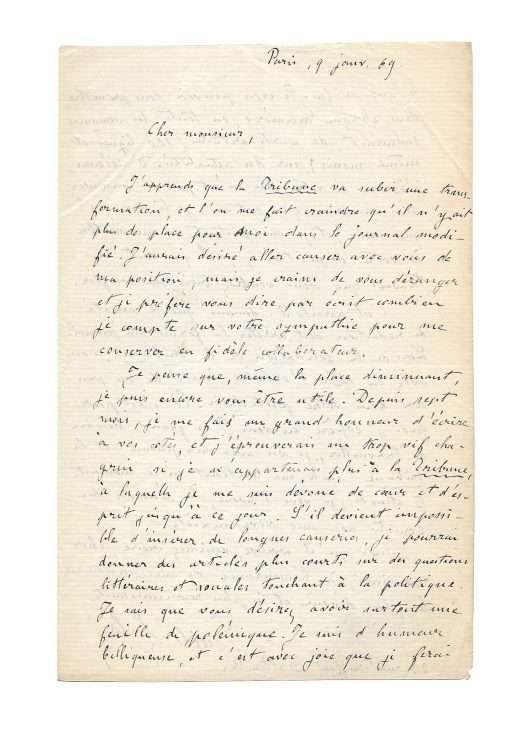 Paris, 9 janv. 69
Cher monsieur,
J'apprends que la Tribune va subir une trans-
formation, et l'on me fait craindre qu'il n'y ait
plus de place pour moi dans le journal modi-
fié. J'aurais désiré aller causer avec vous de
ma position, mais je crains de vous déranger
et je préfère vous dire par écrit combien
je compte sur votre sympathie pour me
conserver en fidèle collaborateur.
Je pense que, même la place diminuant,
je puis encore vous être utile. Depuis sept
mois, je me fais un grand honneur d'écrire
à vos côtés, et j'éprouverais un trop vif cha-
grin si je n'appartenais plus à la Tribune,
à laquelle je me suis dévoué de cœur et d'es-
prit jusqu'à ce jour. S'il devient impossi-
ble d'insérer de longues causeries, je pourrai
donner des articles plus courts sur des questions
littéraires et sociales touchant à la politique.
Je sais que vous désirez avoir surtout une
feuille de polémique. Je suis d'humeur
belliqueuse, et c'est avec joie que je ferai